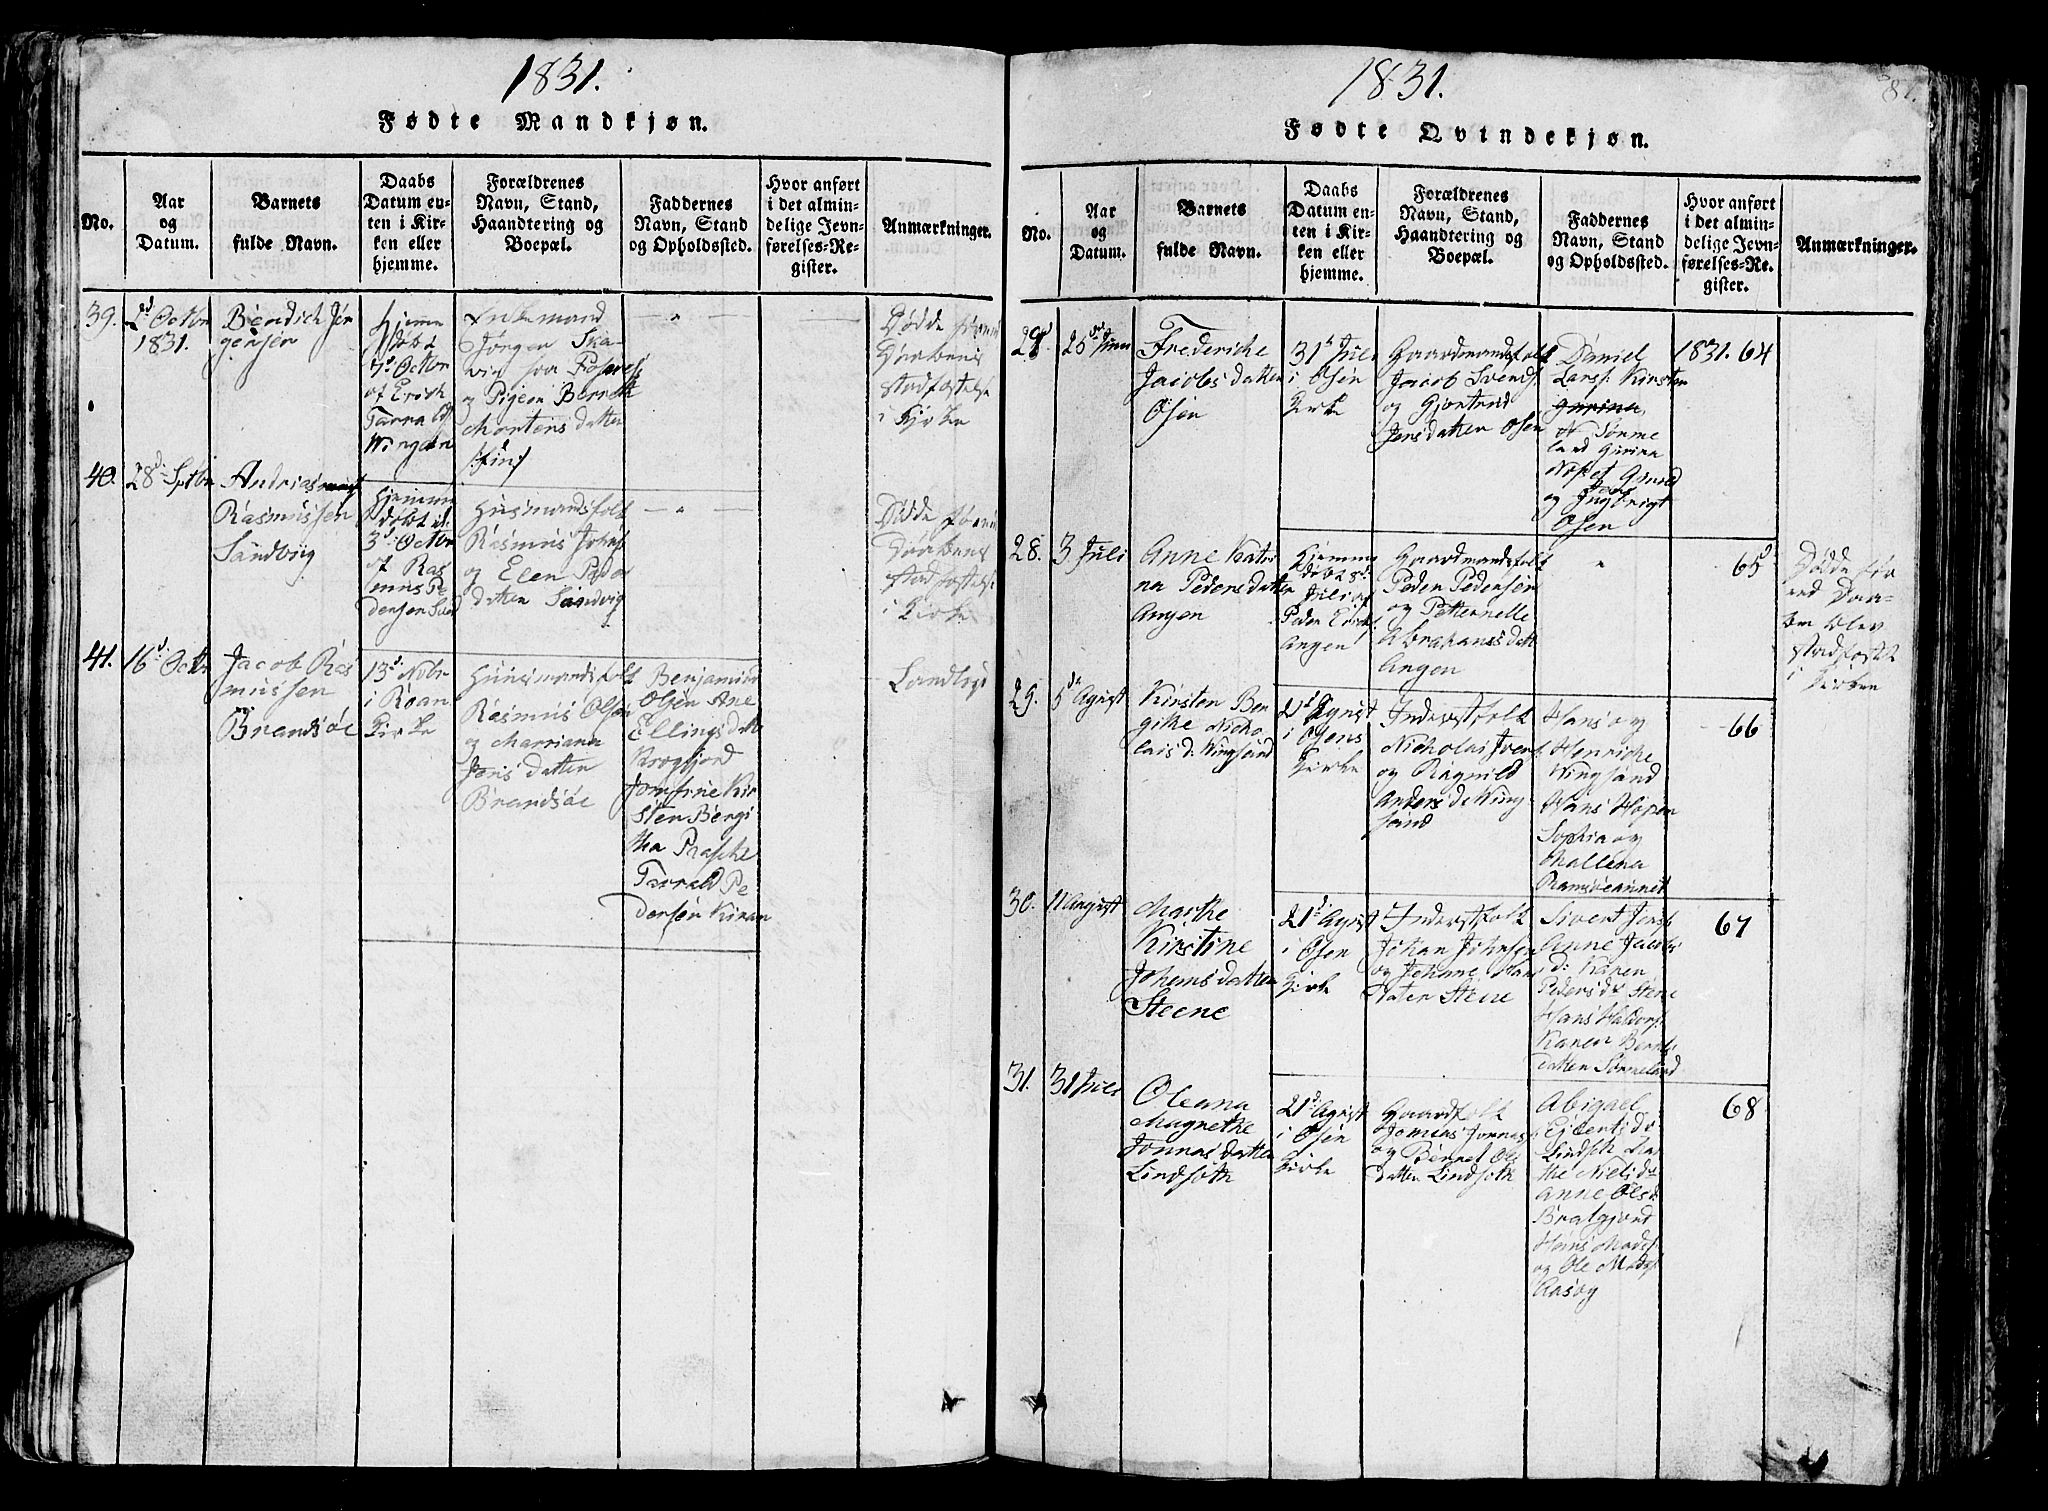 1831.
Fødte Mandkjøn.
No.
Aar
og
Datum.
Barnets
fulde Navn.
Daabs
Datum en-
ten i Kir-
ken eller
hjemme.
Forældrenes
Navn, Stand,
Haandtering og
Boepæl.
Faddernes
Navn, Stand
og Opholdssted.
Hvor anført
i det almin-
delige Jevn-
førelses-Re-
gister.
Anmærkninger.
39.
2d Octbr
1831.
Bendich Jør
gensen
Hjemme
døbt
7d Octbr
af Erich
Wingan
Enkemand
Jørgen Ska-
vig
og Pigen Bereth
Mortens datter
Dødde
Daabens
stadfæstelse
i Kirke
40.
28d Sptbr
Andrias
Rasmussen
Sandvig
Hjemme
døbt
3d Octbr
af Ras
mus Pe
dersen
Husmandsfolk
Rasmus Johns
og Elen Peder
datter Sandvig
Dødde
Daabens
stadfæstelse
i Kirke
41.
16d Octbr
Jacob Ras
mussen
Brandsøe
13d Nobr
i Roan
Kirke
Huusmandsfolk
Rasmus Olsen
og Marriana
Jens datter
Brandsøe
Benjamin
Olsen Ane
Ellings datt
Krogfjord
Jomfrue Kir
sten Bergi
tha Paasche
Tarrald Pe
dersen Kiran
1831.
81.
Fødte Qvindekjøn.
No.
Aar
og
Datum.
Barnets
fulde Navn.
Daabs
Datum en-
ten i Kir-
ken eller
hjemme.
Forældrenes
Navn, Stand,
Haandtering og
Boepæl.
Faddernes
Navn, Stand
og Opholdssted.
Hvor anført
i det almin-
delige Jevn-
førelses-Re-
gister.
Anmærkninger.
25de Juni
Frederiche
Jacobs datter
Osen
31d Juli
i Osen
Kirke
Gaardmandsfolk
Jacob Svends
og Gjertrud
Jens datter Osen
Daniel
Larss: Kirsten
Sørme
land Gurina
og Ingbrigt
Osen
1831. 64
28.
3 Juli
Anne Katri
na Peders datter
Angen
Hjemme
døbt 8d
Juli af
Peder Erichs
Angen
Gaardmandsfolk
Peder Pedersen
og Petternelle
Abrahams datt
Angen
65
Dødde før
end Daa-
ben blev
stadfæstet
i Kirken
29.
5de Agust
Kirsten Ben
gike Nicho
lais d: Wingsand
21d Agust
i Osens
Kirke
Inderstfolk
Nicholai Ivers:
og Ragnild
Anders d: Wing
sand
Hans og
Henriche
Wingsand
Hans Hopen
Sophia og
Mallena
Ramsøe
66
30.
11 August
Marthe
Kirstine
Johans datter
Steene
21d Agust
i Osen
Kirke
Inderstfolk
Johan Johnsen
og Johane Hans
dater Steene
Sivert Jens:
Anne Jacobs
d: Karen
Peders dr Stene
Hans Haldors:
Karen Bernts
datter Sørmeland
67
31.
31 Juli
Oleana
Magrethe
Jonnas datter
Lindsøth
21d Agust
i Osen
Kirke
Gaardfolk
Jonnas Jonnas:
og Beret Ols
datter Lindsøth
Abigael
Ejderts dr
Lindseth Mar
the Niels dr
Anne Ols d:
Bratgjerd
Hans Mads:
og Ole Mads:
Aasøy
68